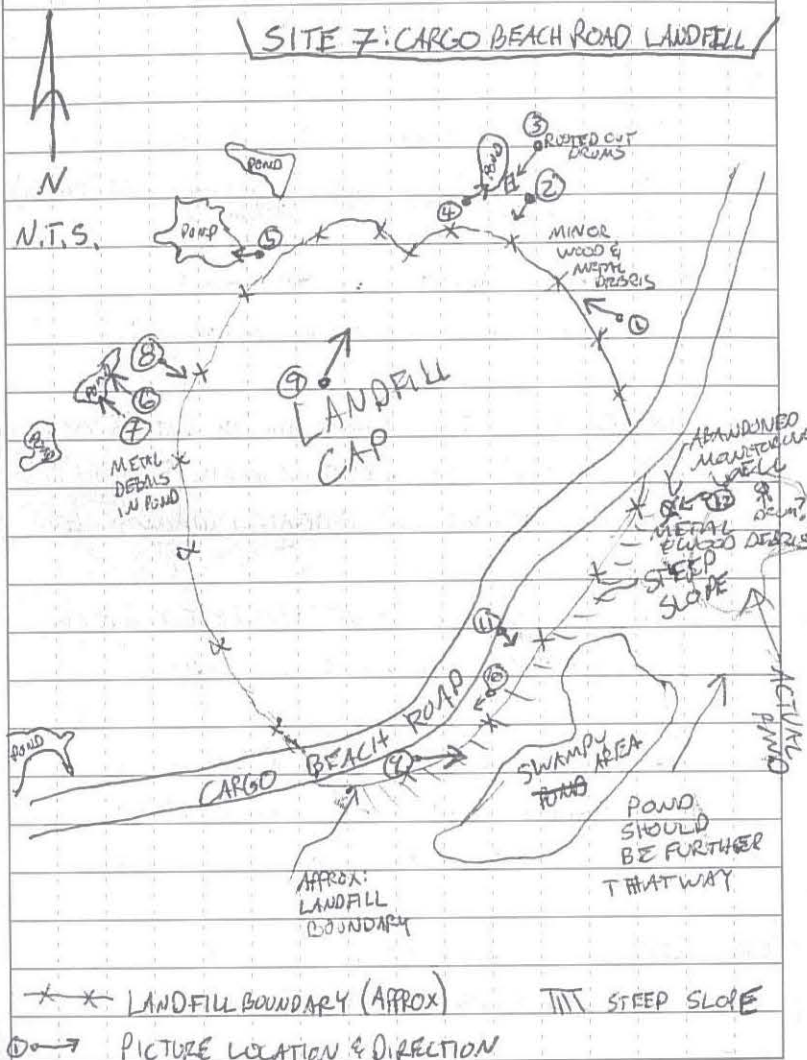 SITE 7: CARGO BEACH ROAD LANDFILL
N
N.T.S.
POND
POND
POND
③
ROOTED OUT
DRUMS
②
④
⑤
MINOR
WOOD &
METAL
DEBRIS
①
⑧
POND
⑥
⑦
METAL
DEBRIS
IN POND
⑨
LANDFILL
CAP
ABANDONED
MONITORING
WELL
⑫
DRUM
METAL
& WOOD DEBRIS
STEEP
SLOPE
⑪
⑩
ACTUAL
POND
POND
CARGO BEACH ROAD
⑨
SWAMPY AREA
POND
POND
SHOULD
BE FURTHER
THAT WAY
APPROX:
LANDFILL
BOUNDARY
LANDFILL BOUNDARY (APPROX)
STEEP SLOPE
① PICTURE LOCATION & DIRECTION